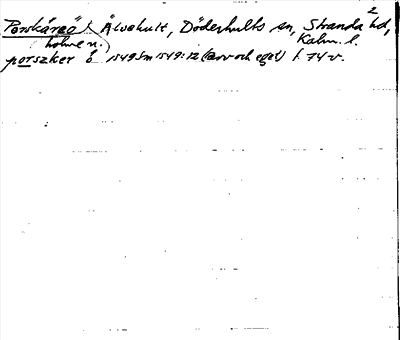 Porskärsö Ålvehult, Döderhults sn, Stranda hd, 2
(holme n.) Kalm. l.
porszker ö 1549 Sm 1549:12 (arv och eget) f. 74 v.